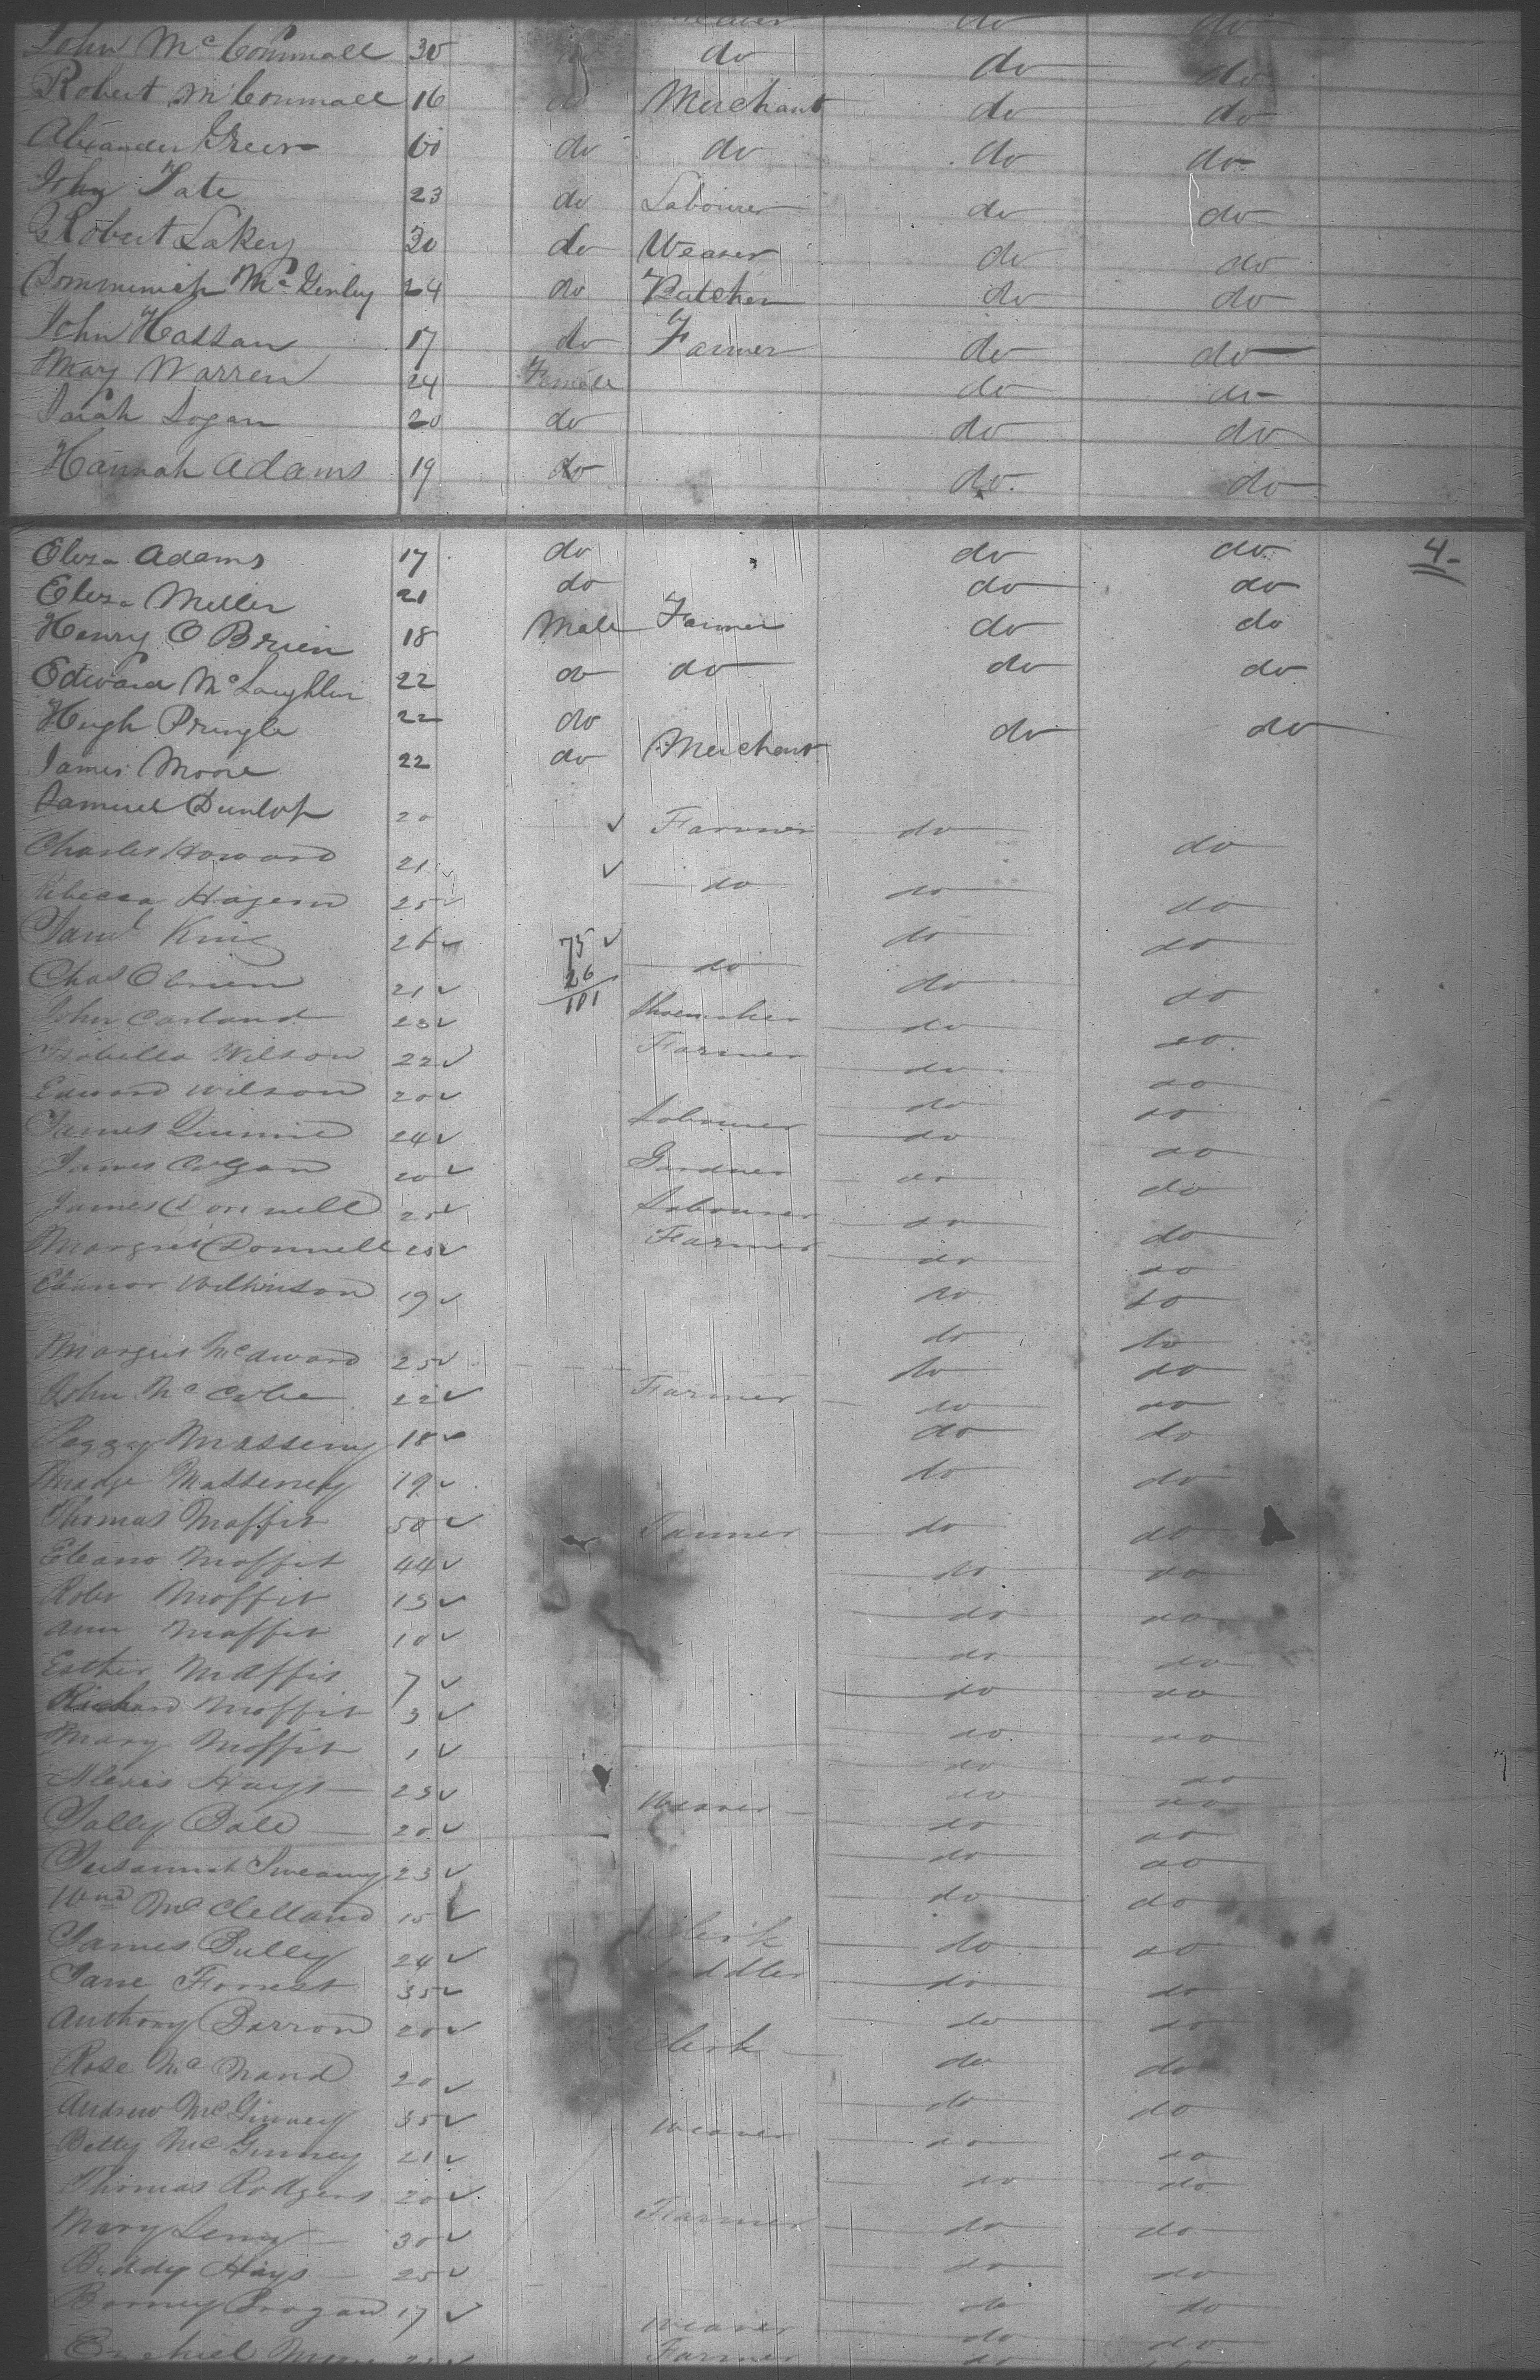 Weaver do do
John McConmall 30 do do do
Robert McConmall 16 do Merchant do do
Alexander Greer 60 do do do do
John Tate 23 do Labourer do do
Robert Lakey 30 do Weaver do do
Dommenich McGinley 24 do Butcher do do
John Hassan 17 do Farmer do do
Mary Warren 24 Female do do
Sarah Logan 20 do do do
Hannah Adams 19 do do do
Eliza Adams 17 do do do 4
Eliza Miller 21 do do do
Henry O Brien 18 Male Farmer do do
Edward McLaughlin 22 do do do do
Hugh Pringle 22 do
James Moore 22 do Merchant do do
Samuel Dunlop 20 ✓ Farmer do do
Charles Howard 21 ✓ ✓ do do do
Rebecca 25 ✓ do do
Saml King 26 ✓ 75 ✓ do do do
Chas Obrien 21 ✓ 26 Shoemaker do do
John Carland 23 ✓ 101 Farmer do do
Isabella Wilson 22 ✓ do do
Edward Wilson 20 ✓ Labourer do do
James 24 ✓ Gardner do do
James Colgan 20 ✓ Labourer do do
James Donnell 25 ✓ Farmer do do
Margret Donnell ✓ do do
Elannor Wilkinson 19 ✓ do do
Margret McAward 25 ✓ do do
John McCabe 22 ✓ Farmer do do
Peggy Masseny 18 ✓ do do
Madge Masseney 19 ✓ do do
Thomas Moffit 50 ✓ Farmer do do
Eleano Moffit 44 ✓ do do
Robt Moffit 13 ✓ do do
Ann Moffit 10 ✓ do do
Esther Moffit 7 ✓ do do
Richard Moffit 3 ✓ do do
Mary Moffit 1 ✓ do do
Alexis Hays 23 ✓ Weaver do do
Sally Bale 20 ✓ do do
Susannah Sweany 23 ✓ do do
Wm McClelland 15 ✓ Clerk do do
James Bully 24 ✓ Saddler do do
Jane Forrest 35 ✓ do do
Anthony Barron 20 ✓ Clerk do do
Rose McNand 20 ✓ do do
Andrew McGinney 35 ✓ Weaver do do
Betty McGinney 21 ✓ do do
Thomas Rodgers 20 ✓ Farmer do do
Mary 30 ✓ do do
Biddy Hays 25 ✓ do do
Barney Brogan 17 ✓ Weaver do do
Farmer do